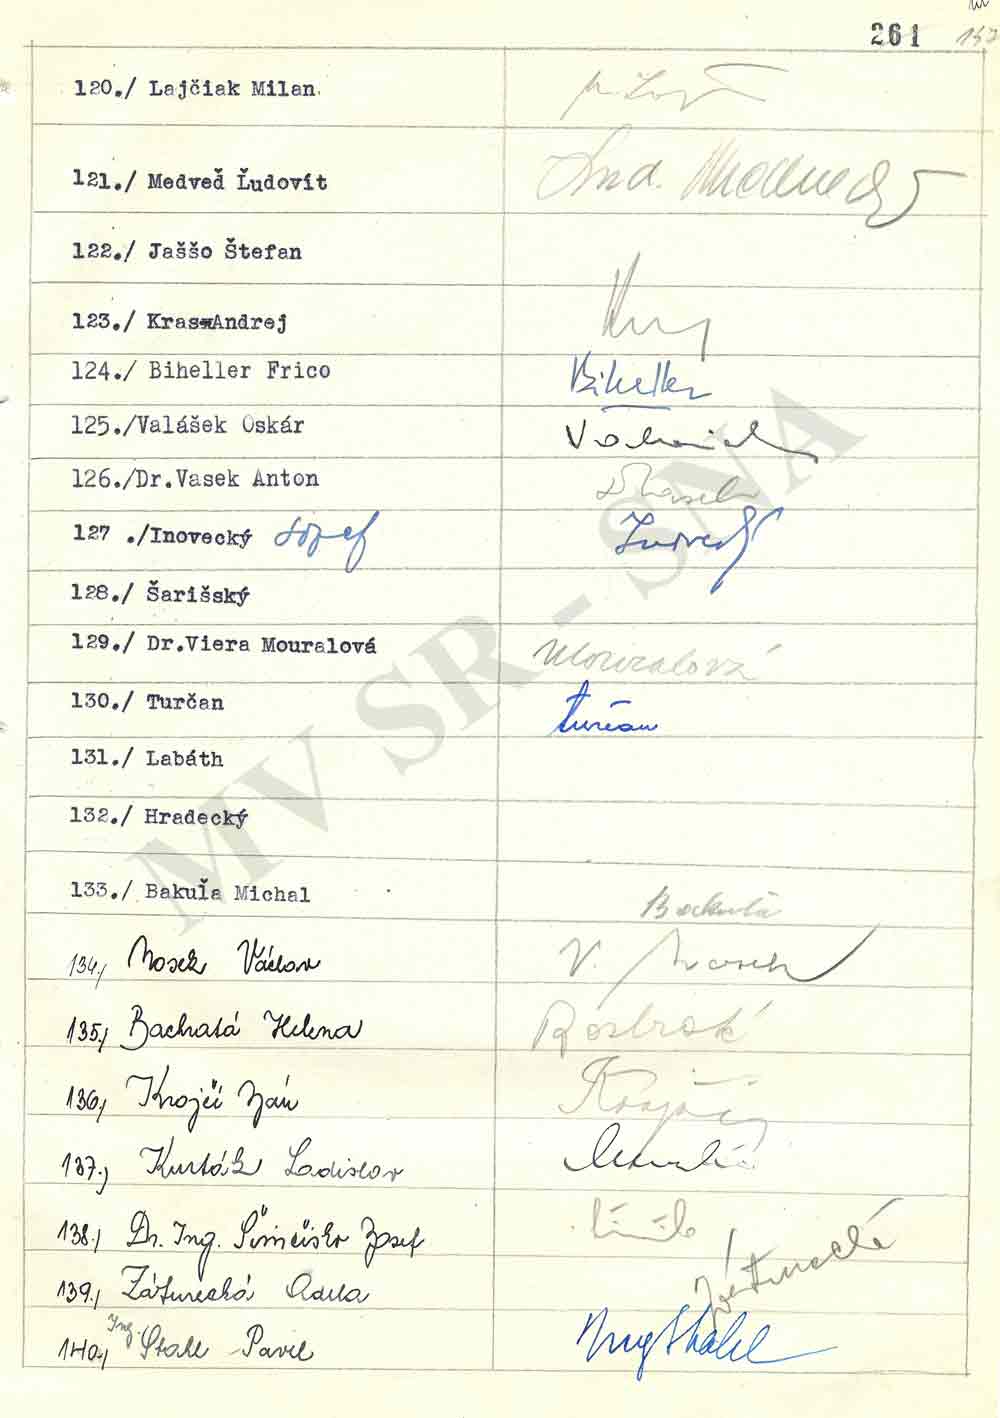 261
120./ Lajčiak Milan.
121./ Medveď Ľudovít
122./ Jaššo Štefan
123./ Kras Andrej
124./ Biheller Frico Biheller
125./Valášek Oskár
126./Dr.Vasek Anton
127 ./Inovecký Jozef
128./ Šarišský
129./ Dr.Viera Mouralová Mouralová
130./ Turčan Turčan
131./ Labáth
132./ Hradecký
133./ Bakuľa Michal
134./ Nosek Václav V. Nosek
135./ Bachratá Helena
136./ Krajčí Ján
137./ Kurták Ladislav
138./ Dr. Ing. Šimčisko Jozef
139./ Záturecká Adela Záturecká
140./ Ing. Stahl Pavel Ing Stahl
MV SR - SNA